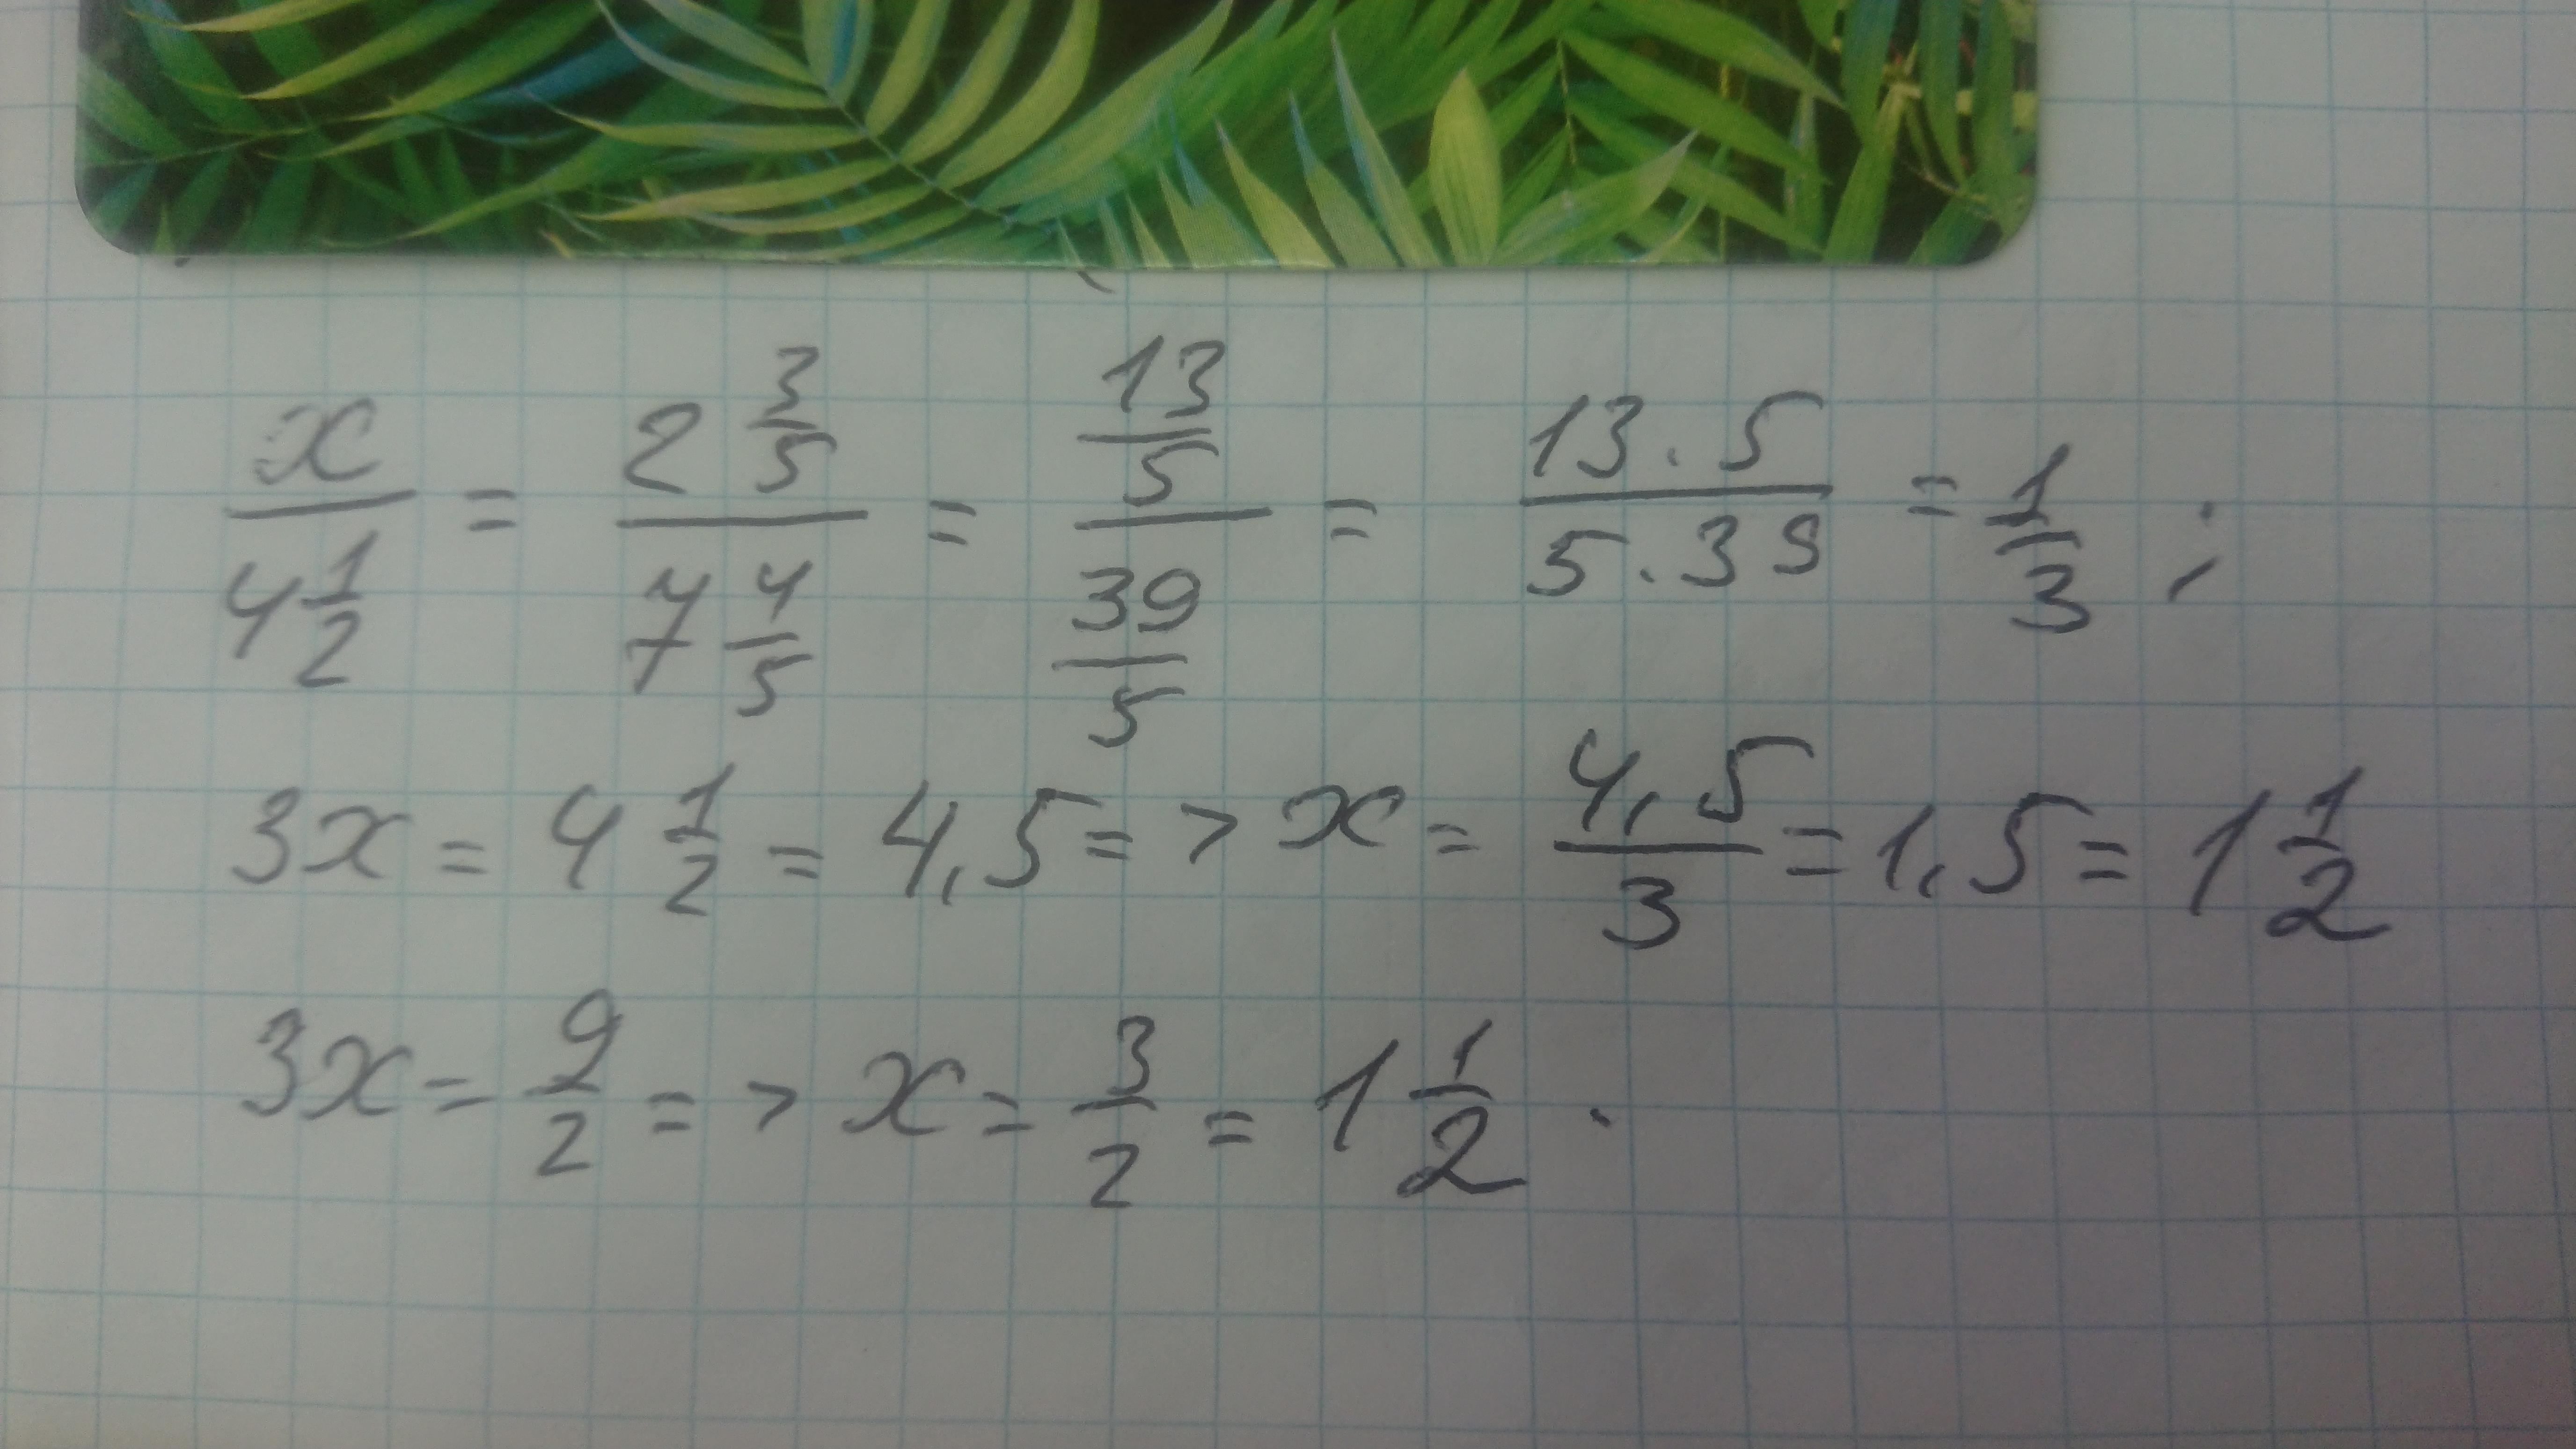 x/(4 1/2) = (2 3/5)/(7 4/5) = (13/5)/(39/5) = (13 · 5)/(5 · 39) = 1/3 ;
3x = 4 1/2 = 4,5 => x = 4,5/3 = 1,5 = 1 1/2
3x = 9/2 => x = 3/2 = 1 1/2 .